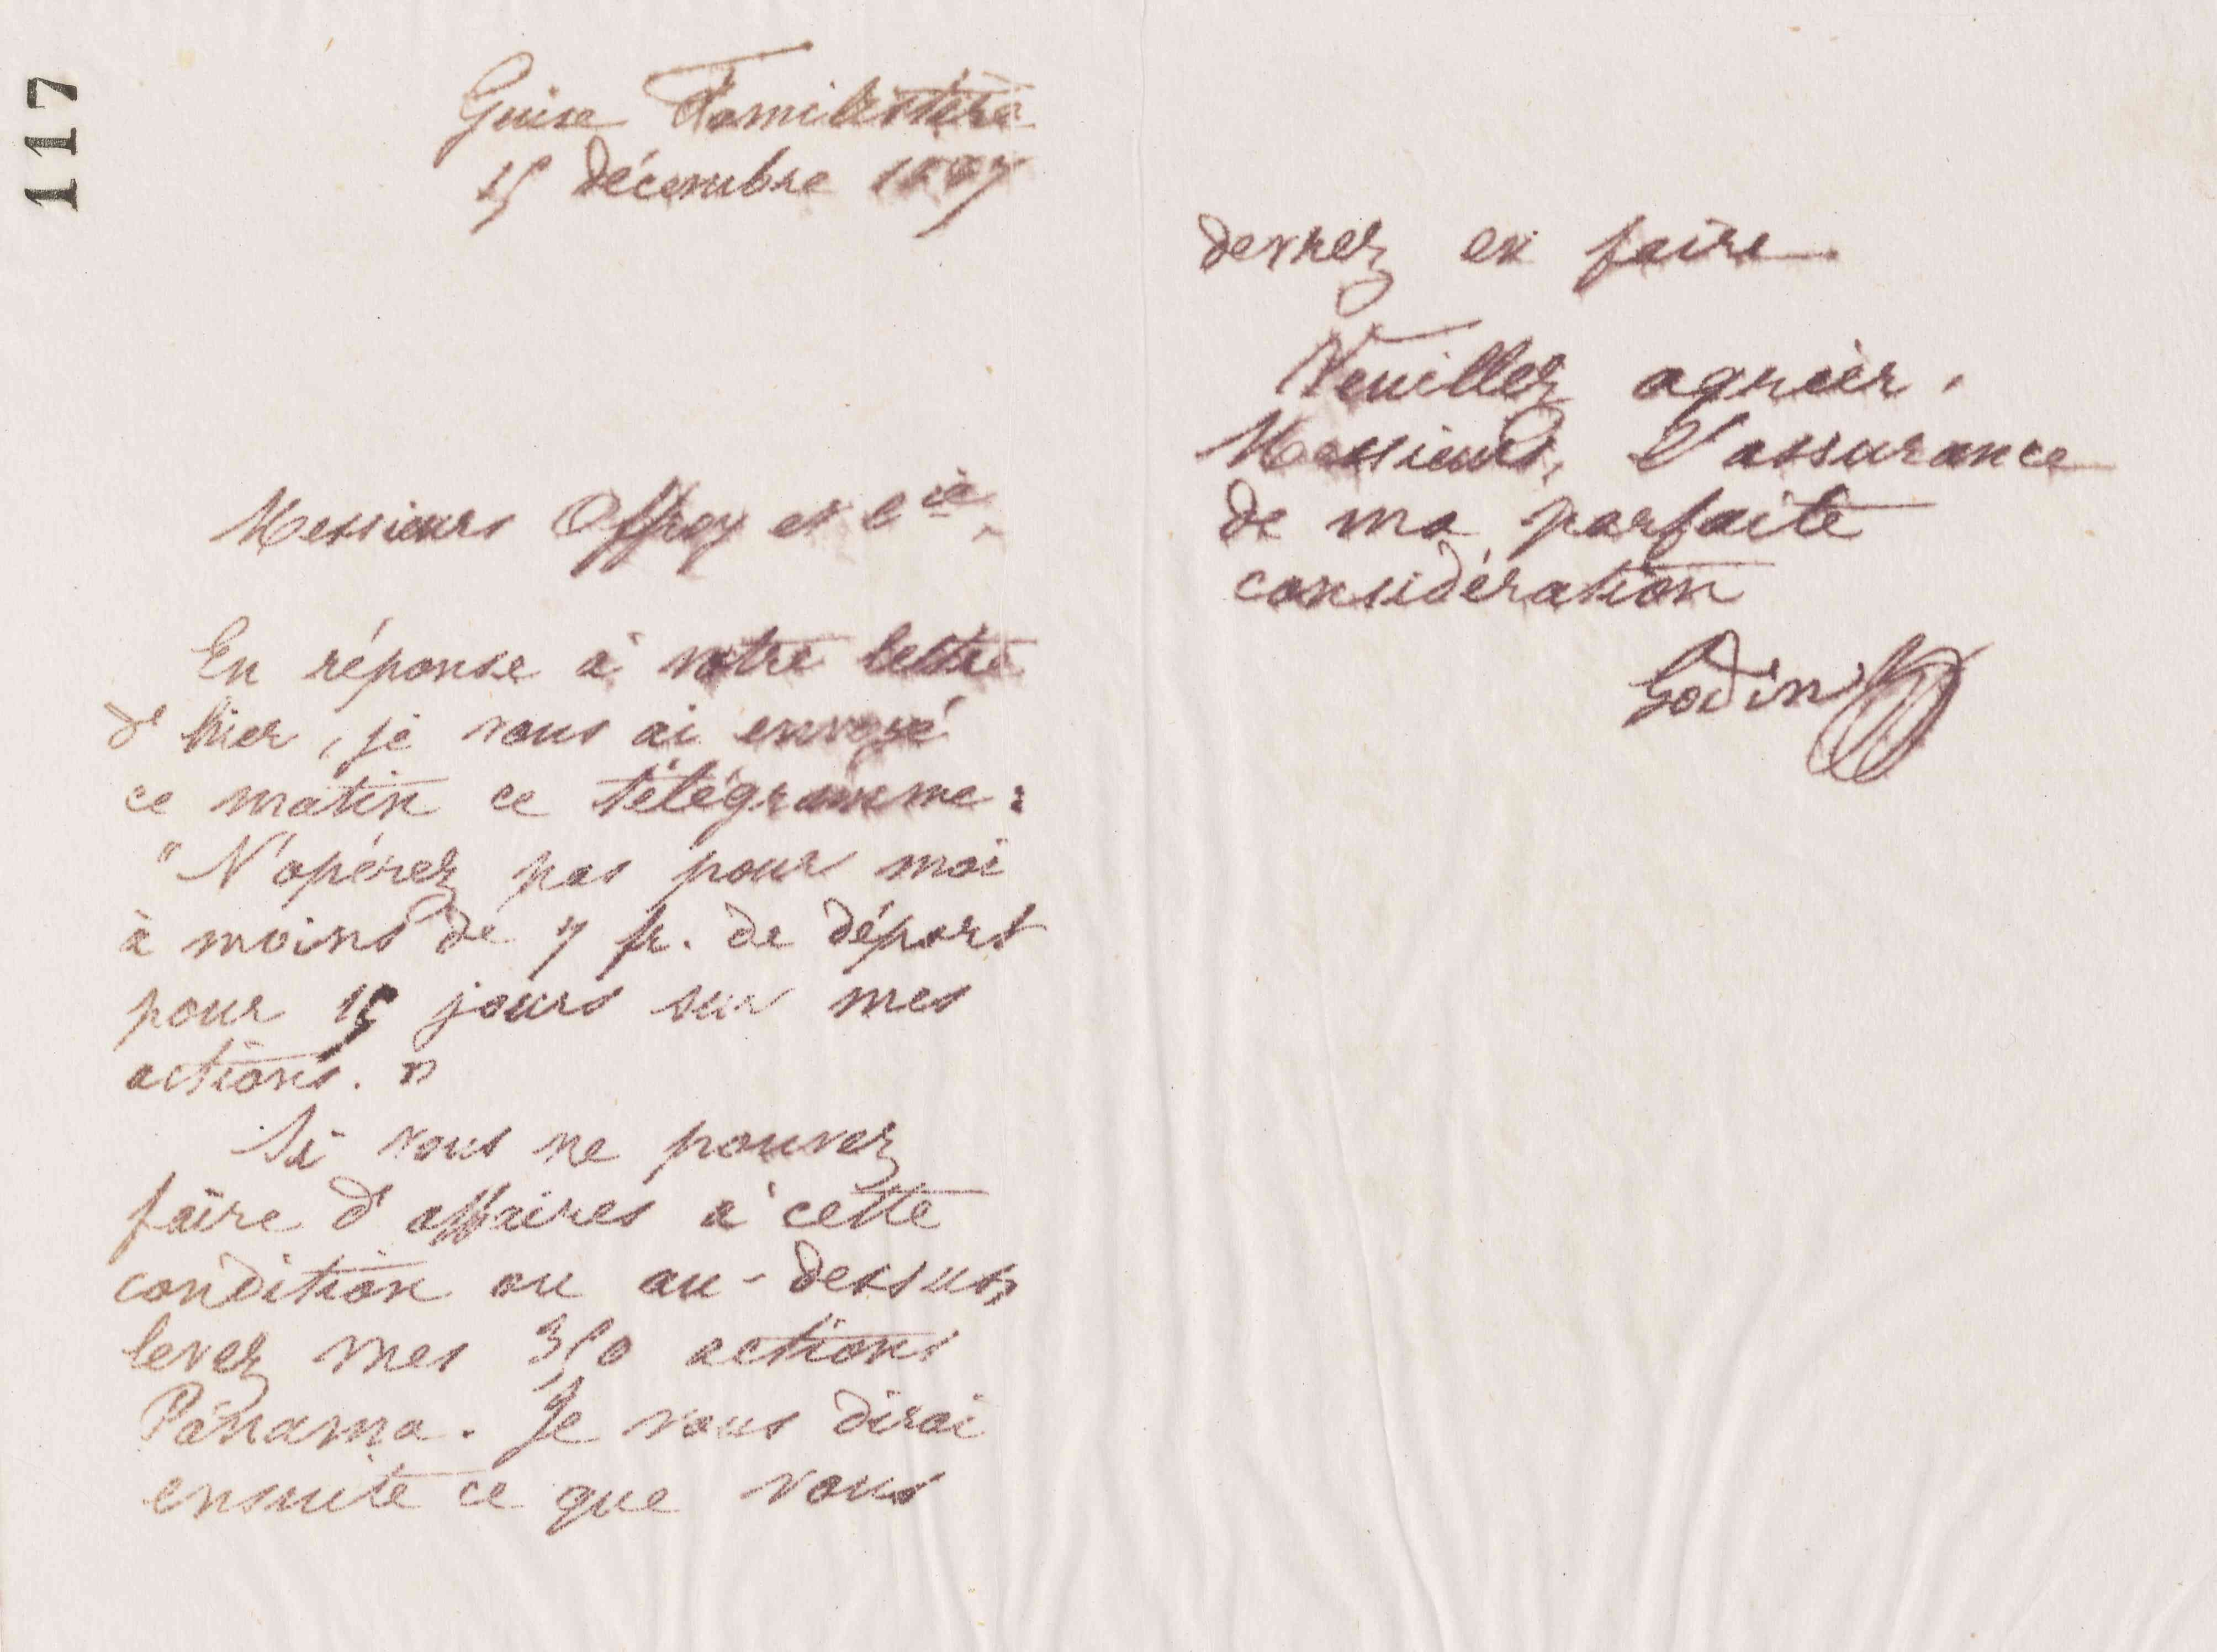 117
Guise Familistère
15 décembre 1887
Messieurs Offroy et Cie,
En réponse à votre lettre
d'hier, je vous ai envoyé
ce matin ce télégramme :
"N'opérez pas pour moi
à moins de 7 fr. de déport
pour 15 jours sur mes
actions. "
Si vous ne pouvez
faire d'affaires à cette
condition ou au-dessus,
levez mes 350 actions
Panama. Je vous dirai
ensuite ce que vous
devrez en faire.
Veuillez agréer,
Messieurs, l'assurance
de ma parfaite
considération
Godin